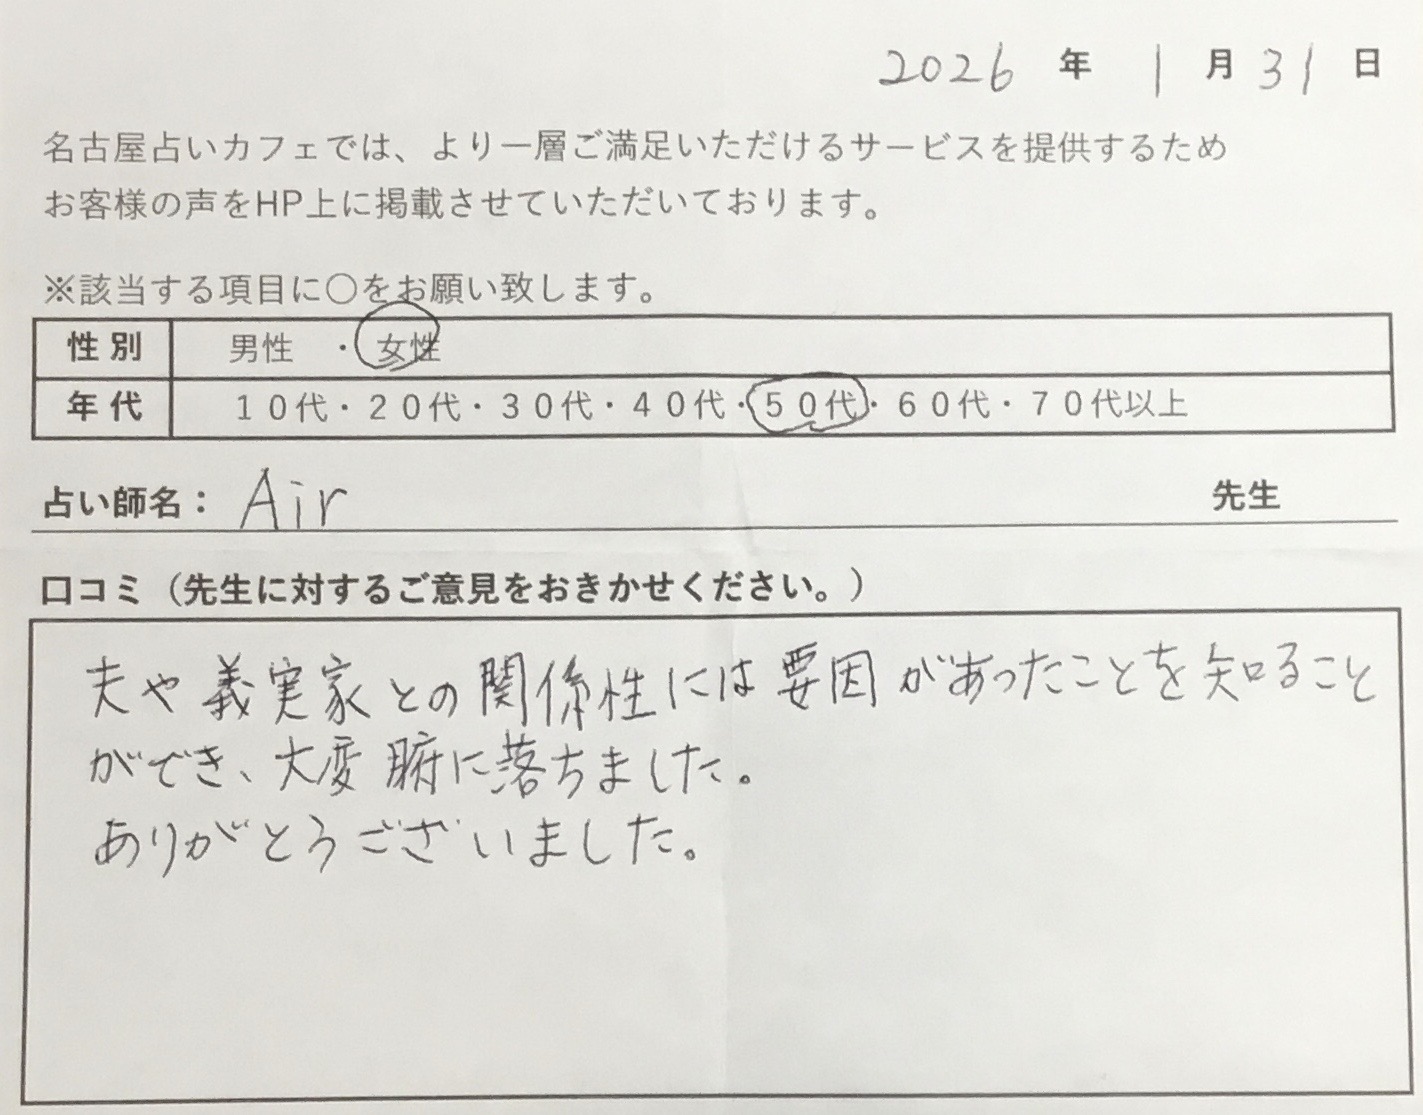 2026 年 1 月 31 日
名古屋占いカフェでは、より一層ご満足いただけるサービスを提供するため
お客様の声をHP上に掲載させていただいております。
※該当する項目に〇をお願い致します。
性別 男性 ・ 女性
年代 10代・20代・30代・40代・50代・60代・70代以上
占い師名： Air 先生
口コミ（先生に対するご意見をおきかせください。）
夫や義実家との関係性には要因があったことを知ること
ができ、大変腑に落ちました。
ありがとうございました。